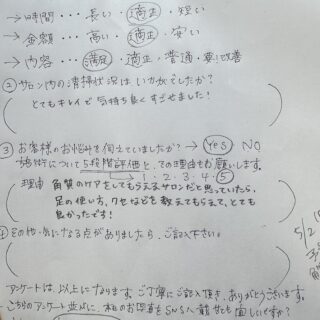 →時間・・・長い・適正・短い
→金額・・・高い・適正・安い
→内容・・・満足・適正・普通・要改善
②サロン内の清掃状況はいかがでしたか?
とてもキレイで気持ち良くすごせました!
③お客様のお悩みを伺えていましたか?→Yes NO
施術について5段階評価と、その理由もお願いします。
→1・2・3・4・5
理由 角質のケアをしてもらえるサロンだと思っていたら、
足の使い方、クセなどを教えてもらえて、とても
良かったです!
④その他、気になる点がありましたら、ご記入下さい。
5/2
アンケートは以上になります。ご丁寧にご記入頂き、ありがとうございます。
こちらのアンケート並びに、本日のお写真をSNSへ載せても宜しいですか?